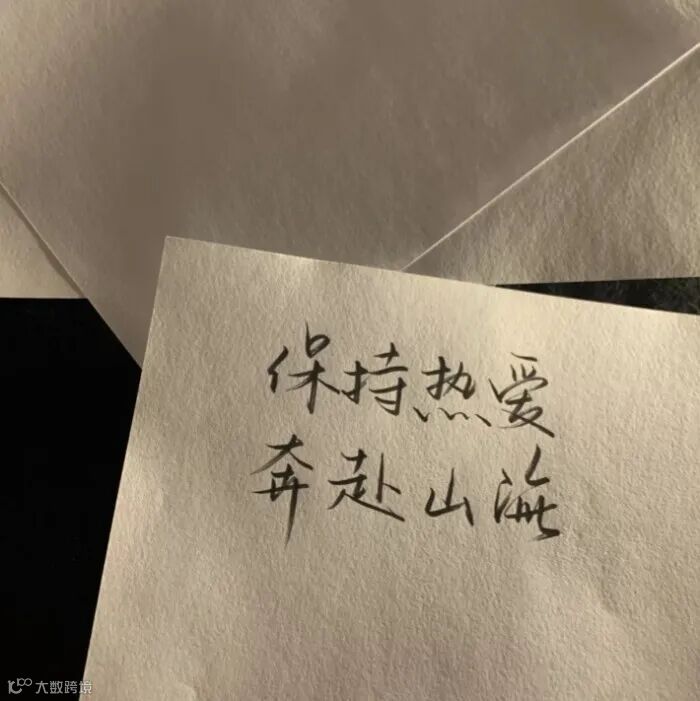 保持热爱
奔赴山海
大数跨境